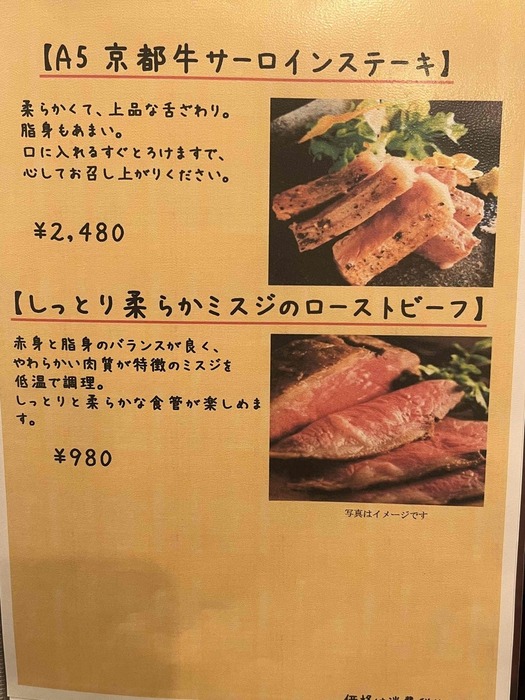 【A5 京都牛サーロインステーキ】
柔らかくて、上品な舌ざわり。
脂身もあまい。
口に入れるすぐとろけますで、
心してお召し上がりください。
¥2,480
【しっとり柔らかミスジのローストビーフ】
赤身と脂身のバランスが良く、
やわらかい肉質が特徴のミスジを
低温で調理。
しっとりと柔らかな食管が楽しめま
す。
¥980
写真はイメージです